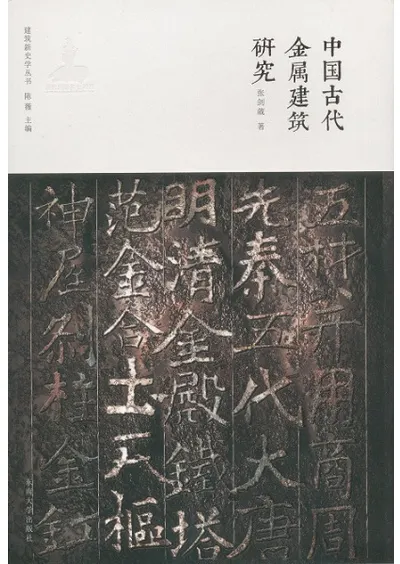 中国古代
金属建筑
研究
张剑葳 著
建筑新史学丛书 陈薇 主编
五材并用商周
先秦五代大唐
明清金殿鐵塔
范金合土天樞
神居刹柱金釭
东南大学出版社